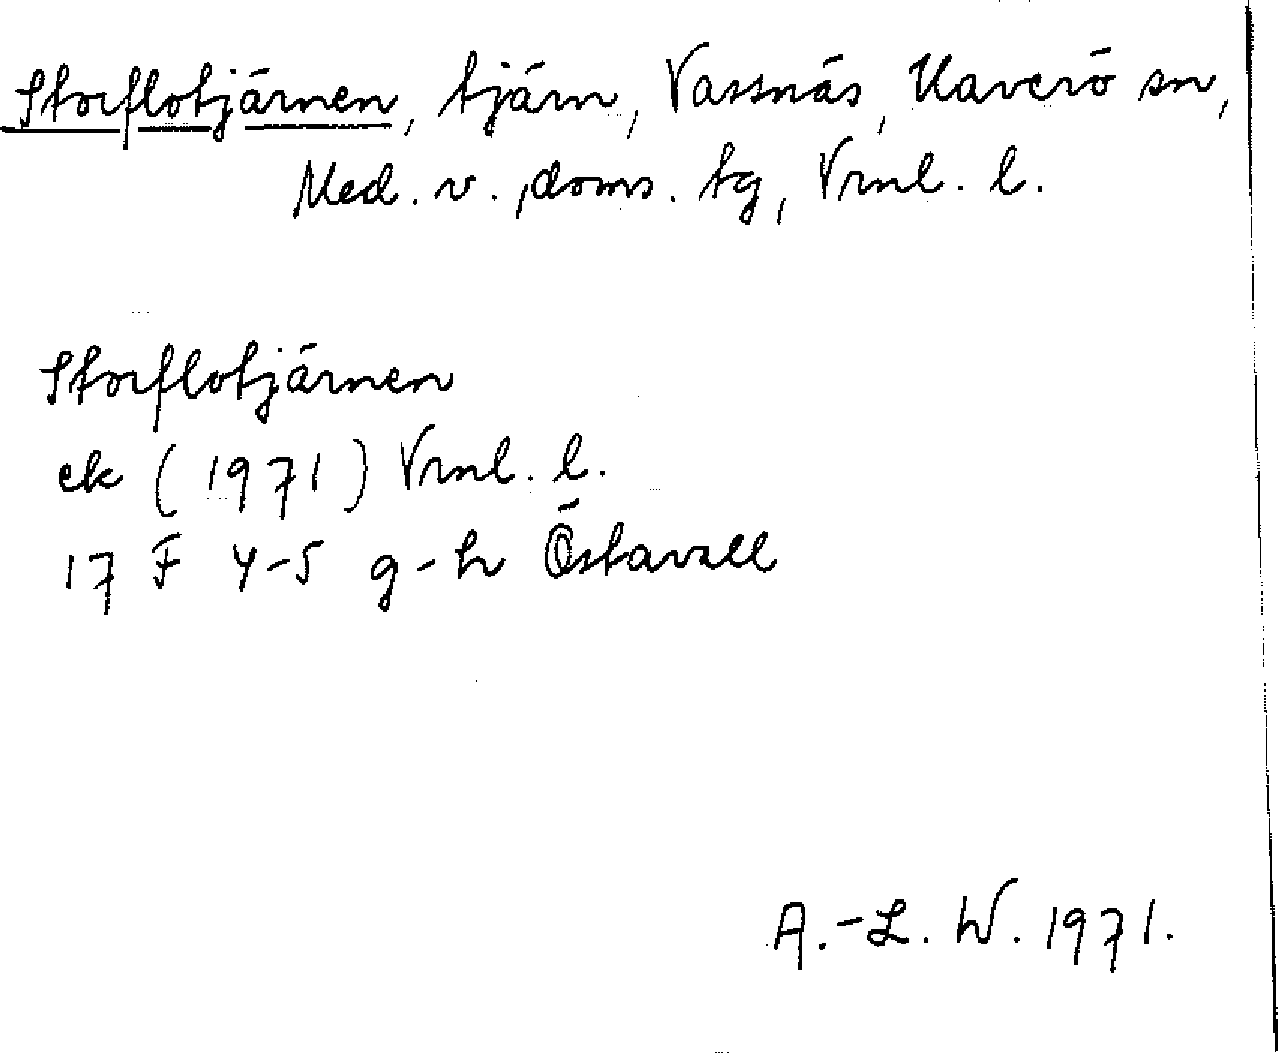 Storflotjärnen, tjärn, Vassnäs, Haverö sn,
Med. v. doms. tg, Vrnl. l.
Storflotjärnen
ek (1971) Vrnl. l.
17 F 4-5 g-h Östavall
A.-L. W. 1971.